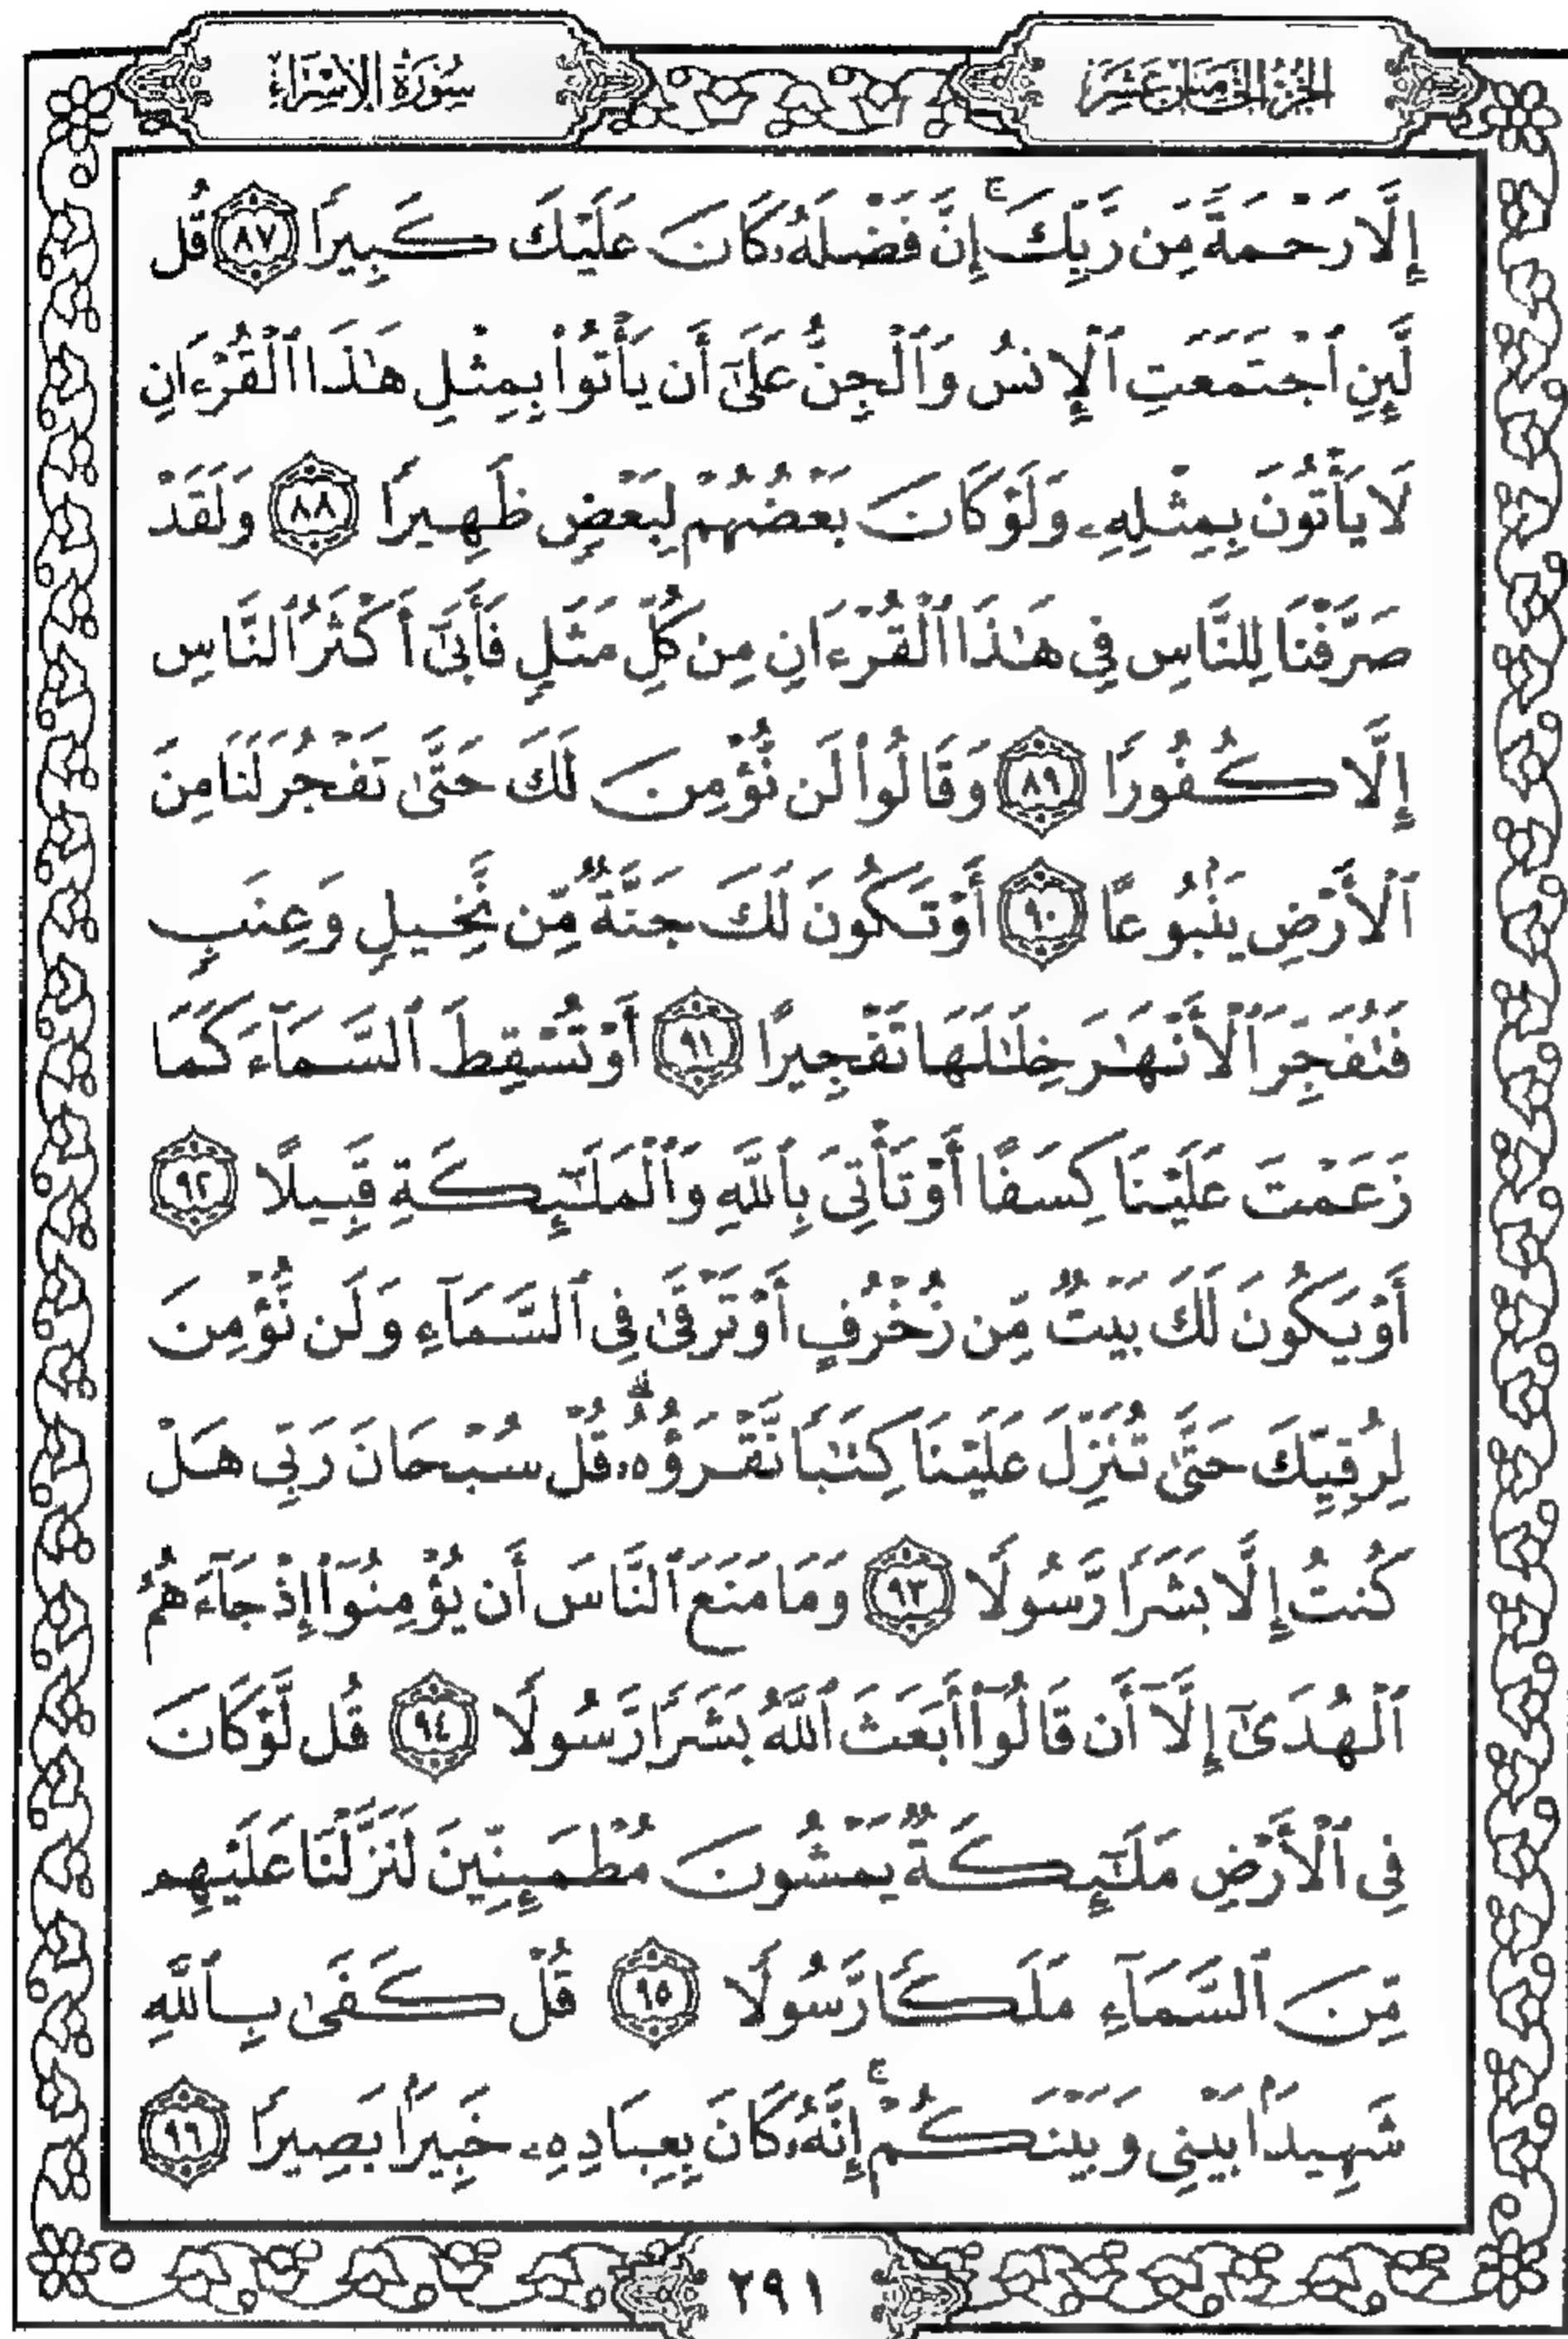 سُورَةُ الْإِسْرَاءِ
الجُزْءُ الخَامِسَ عَشَرَ
إِلَّا رَحْمَةً مِّن رَّبِّكَ ۚ إِنَّ فَضْلَهُۥ كَانَ عَلَيْكَ كَبِيرًا ٨٧ قُل
لَّئِنِ ٱجْتَمَعَتِ ٱلْإِنسُ وَٱلْجِنُّ عَلَىٰٓ أَن يَأْتُوا۟ بِمِثْلِ هَـٰذَا ٱلْقُرْءَانِ
لَا يَأْتُونَ بِمِثْلِهِۦ وَلَوْ كَانَ بَعْضُهُمْ لِبَعْضٍ ظَهِيرًا ٨٨ وَلَقَدْ
صَرَّفْنَا لِلنَّاسِ فِى هَـٰذَا ٱلْقُرْءَانِ مِن كُلِّ مَثَلٍ فَأَبَىٰٓ أَكْثَرُ ٱلنَّاسِ
إِلَّا كُفُورًا ٨٩ وَقَالُوا۟ لَن نُّؤْمِنَ لَكَ حَتَّىٰ تَفْجُرَ لَنَا مِنَ
ٱلْأَرْضِ يَنۢبُوعًا ٩٠ أَوْ تَكُونَ لَكَ جَنَّةٌ مِّن نَّخِيلٍ وَعِنَبٍ
فَتُفَجِّرَ ٱلْأَنْهَـٰرَ خِلَـٰلَهَا تَفْجِيرًا ٩١ أَوْ تُسْقِطَ ٱلسَّمَآءَ كَمَا
زَعَمْتَ عَلَيْنَا كِسَفًا أَوْ تَأْتِىَ بِٱللَّهِ وَٱلْمَلَـٰٓئِكَةِ قَبِيلًا ٩٢
أَوْ يَكُونَ لَكَ بَيْتٌ مِّن زُخْرُفٍ أَوْ تَرْقَىٰ فِى ٱلسَّمَآءِ وَلَن نُّؤْمِنَ
لِرُقِيِّكَ حَتَّىٰ تُنَزِّلَ عَلَيْنَا كِتَـٰبًا نَّقْرَؤُهُۥ ۗ قُلْ سُبْحَانَ رَبِّى هَلْ
كُنتُ إِلَّا بَشَرًا رَّسُولًا ٩٣ وَمَا مَنَعَ ٱلنَّاسَ أَن يُؤْمِنُوٓا۟ إِذْ جَآءَهُمُ
ٱلْهُدَىٰٓ إِلَّآ أَن قَالُوٓا۟ أَبَعَثَ ٱللَّهُ بَشَرًا رَّسُولًا ٩٤ قُل لَّوْ كَانَ
فِى ٱلْأَرْضِ مَلَـٰٓئِكَةٌ يَمْشُونَ مُطْمَئِنِّينَ لَنَزَّلْنَا عَلَيْهِم
مِّنَ ٱلسَّمَآءِ مَلَكًا رَّسُولًا ٩٥ قُلْ كَفَىٰ بِٱللَّهِ
شَهِيدًۢا بَيْنِى وَبَيْنَكُمْ ۚ إِنَّهُۥ كَانَ بِعِبَادِهِۦ خَبِيرًۢا بَصِيرًا ٩٦
٢٩١